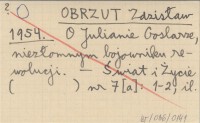 ?
OBRZUT Zdzisław
1954. O Julianie Goslarze,
niezłomnym bojowniku re-
wolucji. — Świat i Życie
( ) nr 7[a]: 1-2, il.